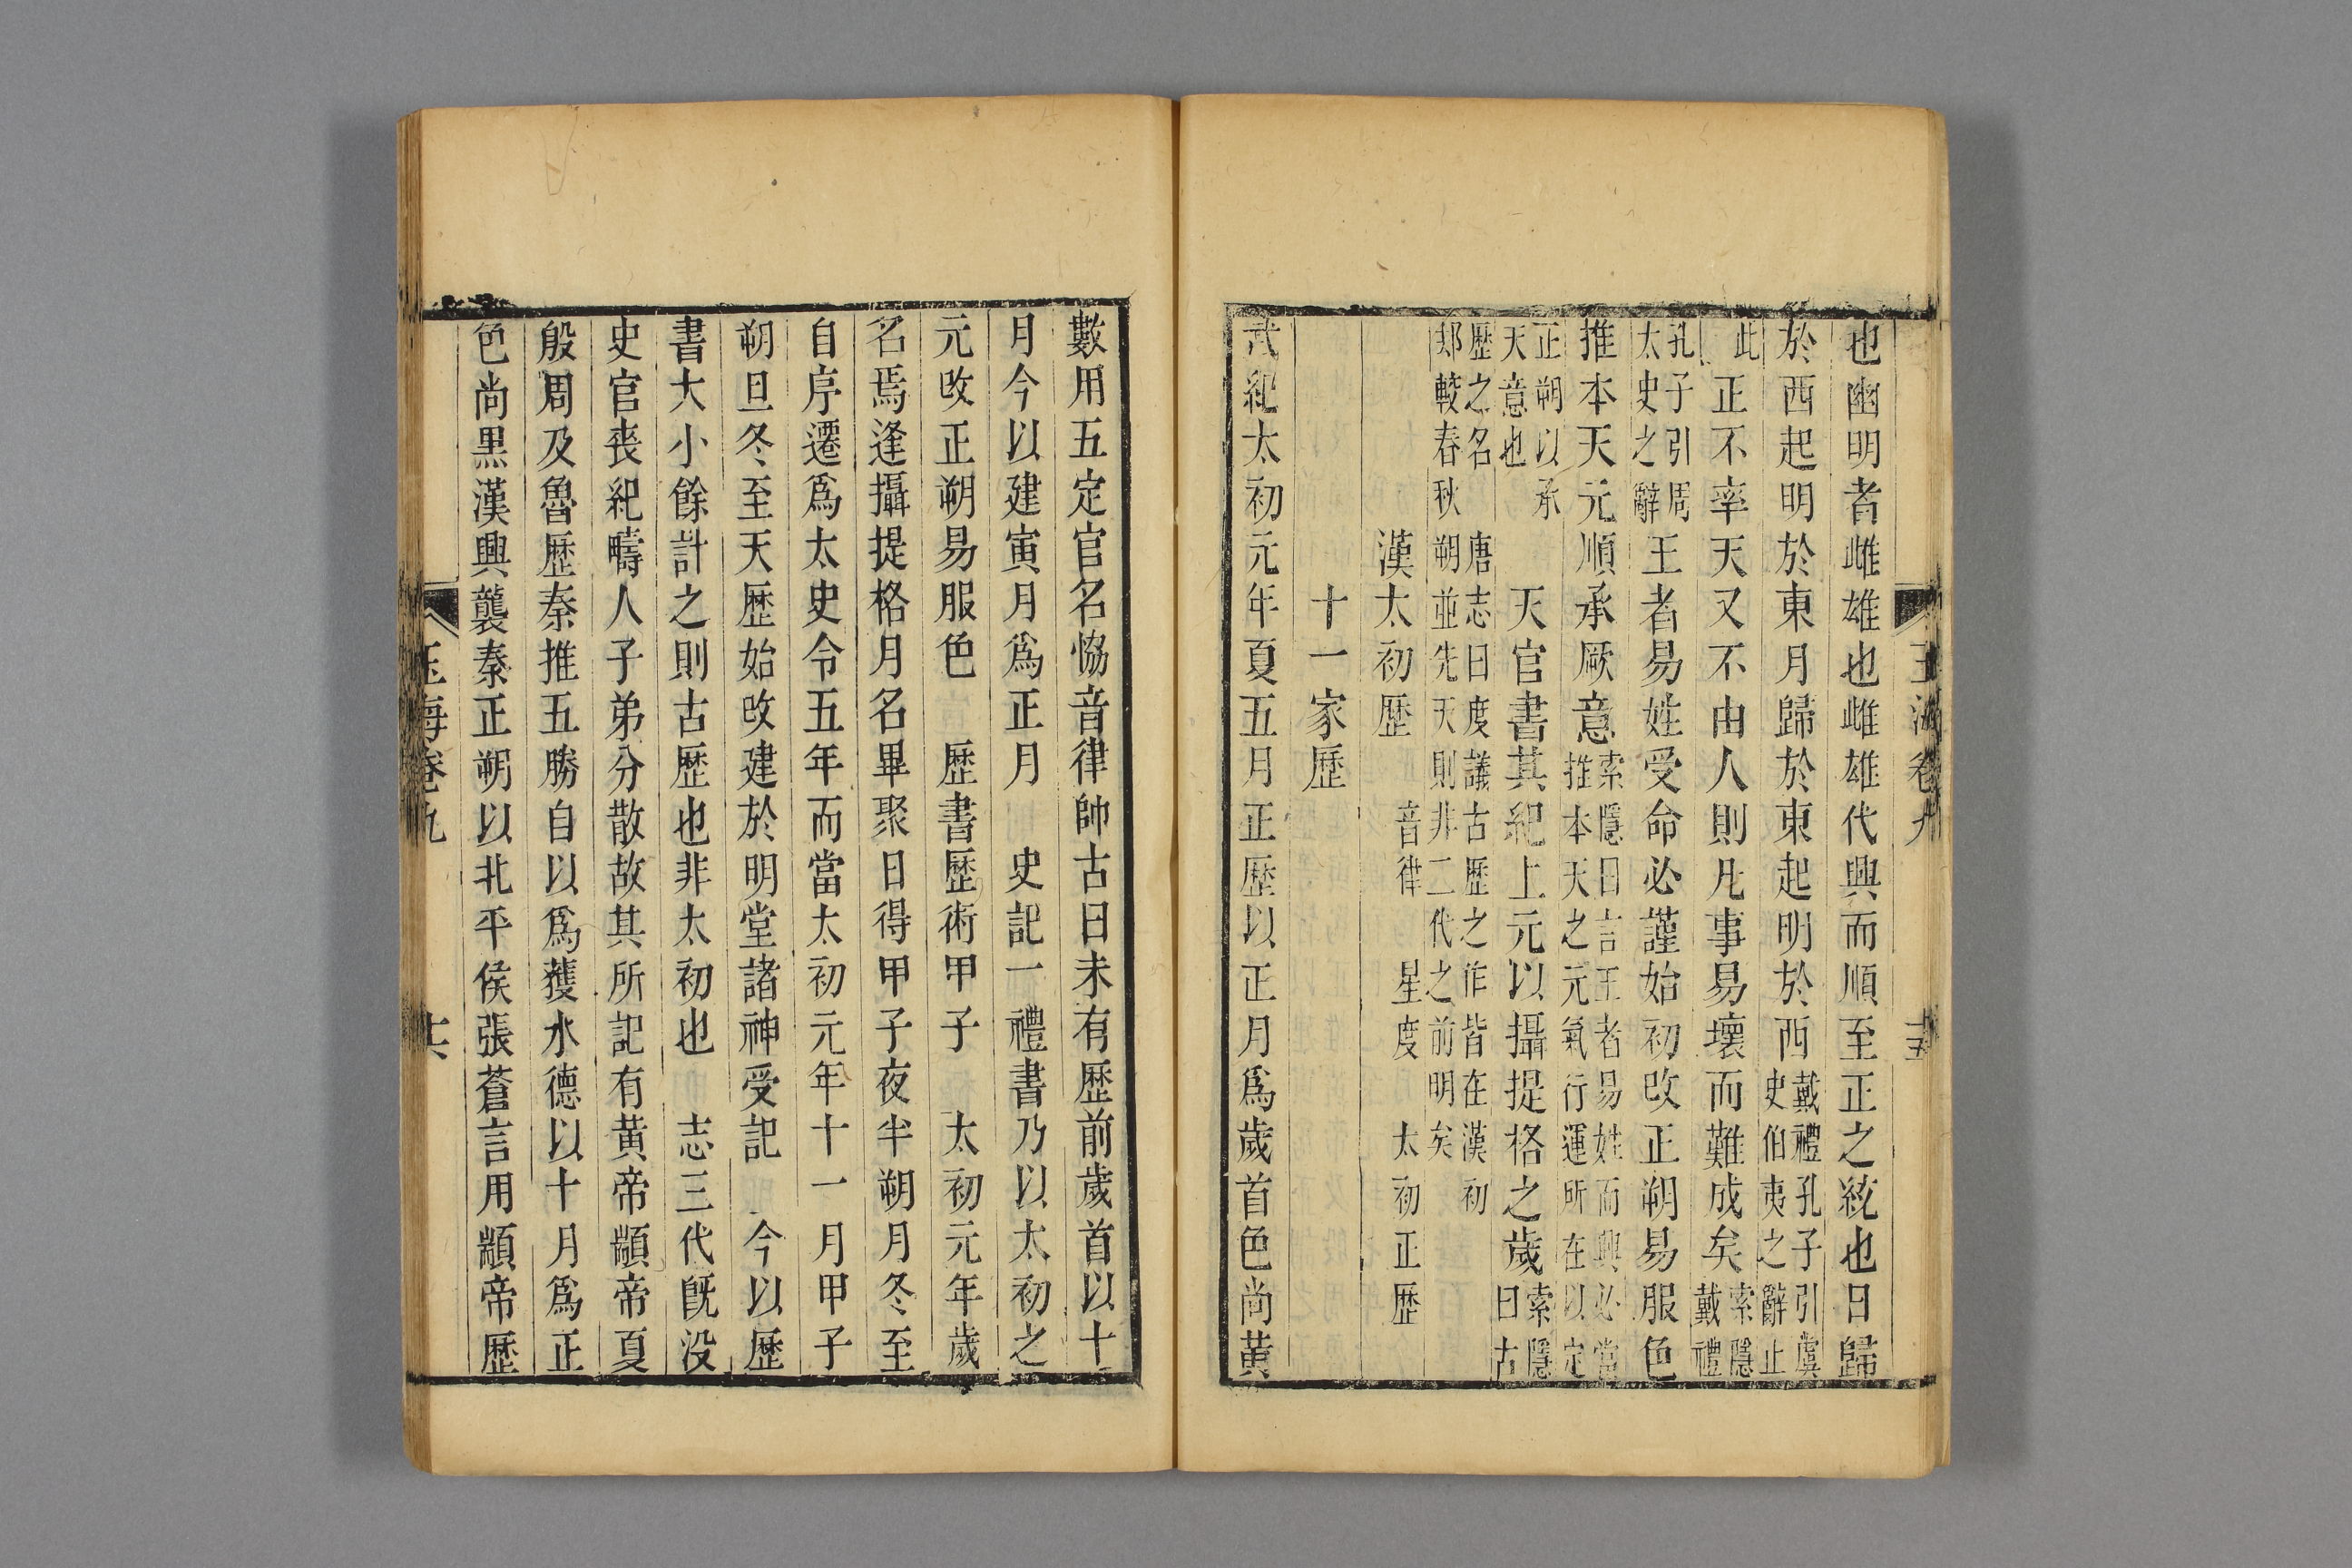 玉海卷九 十五
也幽明者雌雄也雌雄代興而順至正之統也日歸
於西起明於東月歸於東起明於西戴禮孔子引虞史伯夷之辭止
此正不率天又不由人則凡事易壞而難成矣索隱戴禮
孔子引周太史之辭王者易姓受命必謹始初改正朔易服色
推本天元順承厥意索隱曰言王者易姓而興必當推本天之元氣行運所在以定
正朔以承天意也 天官書其紀上元以攝提格之歲索隱曰古
歷之名 唐志日度議古歷之作皆在漢初郄較春秋朔並先天則非二代之前明矣
漢太初歷 音律 星度 太初正歷
十一家歷
武紀太初元年夏五月正歷以正月爲歲首色尚黃
數用五定官名恊音律帥古曰未有歷前歲首以十
月今以建寅月爲正月 史記一禮書乃以太初之
元改正朔易服色 歷書歷術甲子 太初元年歲
名焉逢攝提格月名畢聚日得甲子夜半朔月冬至
自序遷爲太史令五年而當太初元年十一月甲子
朔旦冬至天歷始改建於明堂諸神受記 今以歷
書大小餘計之則古歷也非太初也 志三代旣没
史官喪紀疇人子弟分散故其所記有黃帝顓帝夏
殷周及魯歷秦推五勝自以爲獲水德以十月爲正
色尚黑漢興襲秦正朔以北平侯張蒼言用顓帝歷
玉海卷九 十六